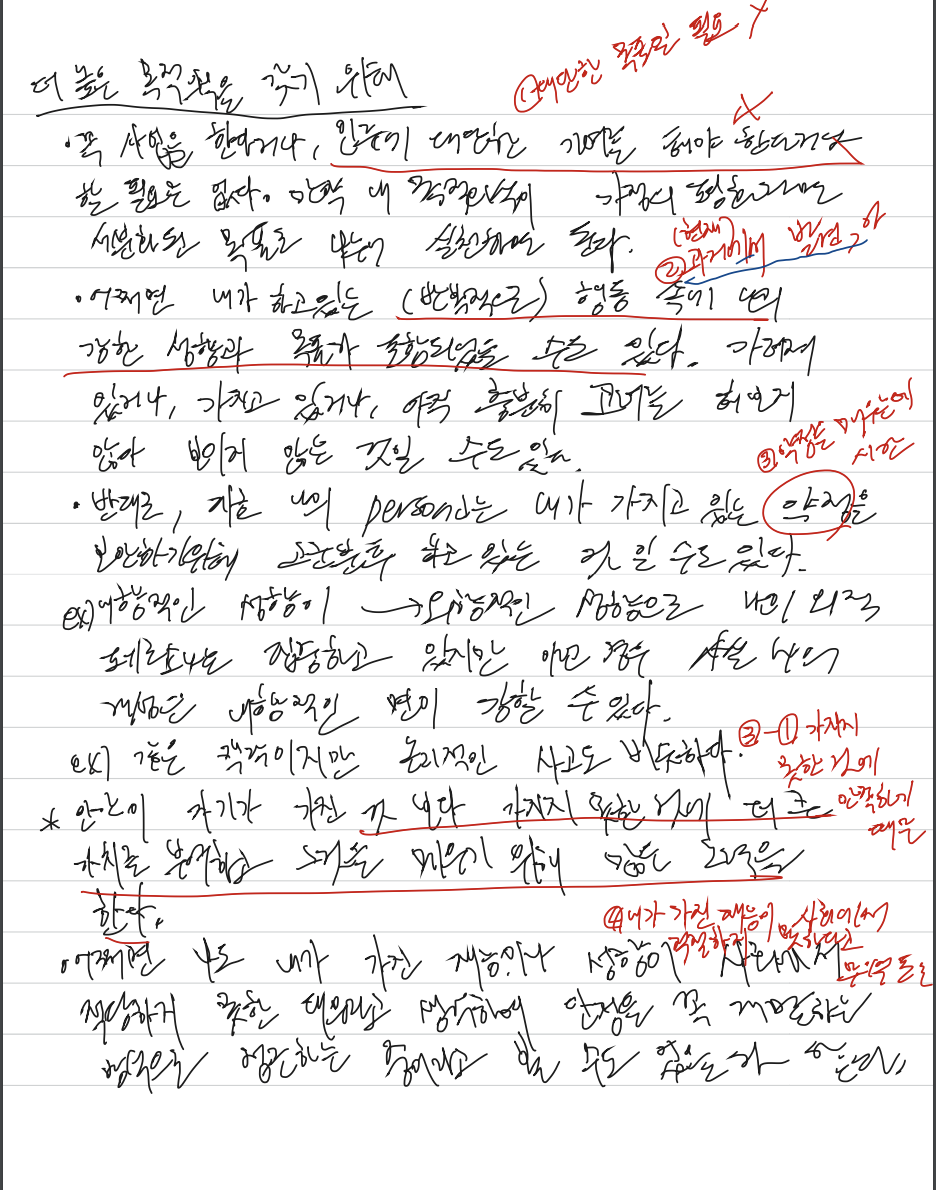 ① 대단한 목표만 필요 X
더 높은 목적의식을 갖기 위해
· 꼭 사업을 한다거나, 인류에 대단한 기여를 해야 한다거나
할 필요는 없다. 만약 내 목적의식이 가정의 평화라면
세분화된 목표로 나누어 실천해도 된다.
(현재)
② 과거에서 발견
· 어쩌면 내가 하고 있는 (반복적으로) 행동 속에 나의
강한 성향과 목표가 포함되었을 수도 있다. 가려져
있거나, 가지고 있거나, 아직 충분히 고려는
않아 보이지 않는 것일 수도 있고.
③ 약점을 메우는데
시간
· 반대로, 지금 나의 persona는 내가 가지고 있는 약점을
보완하기위해 고군분투 하고 있는 것 일 수도 있다.
ex) 내향적인 성향이 → 외향적인 성향으로 나의 외적
페르소나는 집중하고 있지만 이런 경우 사실 나의
강점은 내향적인 면이 강할 수 있다.
③-① 가지지
못한 것에
안착하기
때문
ex) 같은 맥락이지만 논리적인 사고도 비슷하다.
* 인간이 자기가 가진 것 보다 가지지 못한 것에 더 큰
가치를 부여하고 그것을 메우기 위해 많은 노력을
한다.
④ 내가 가진 재능이 사회에서
적절하지 못하다고
· 어쩌면 나도 내가 가진 재능이나 성향이 사회에서
적당하지 못한 태도라고 생각하여 단점을 꼭 개발하는